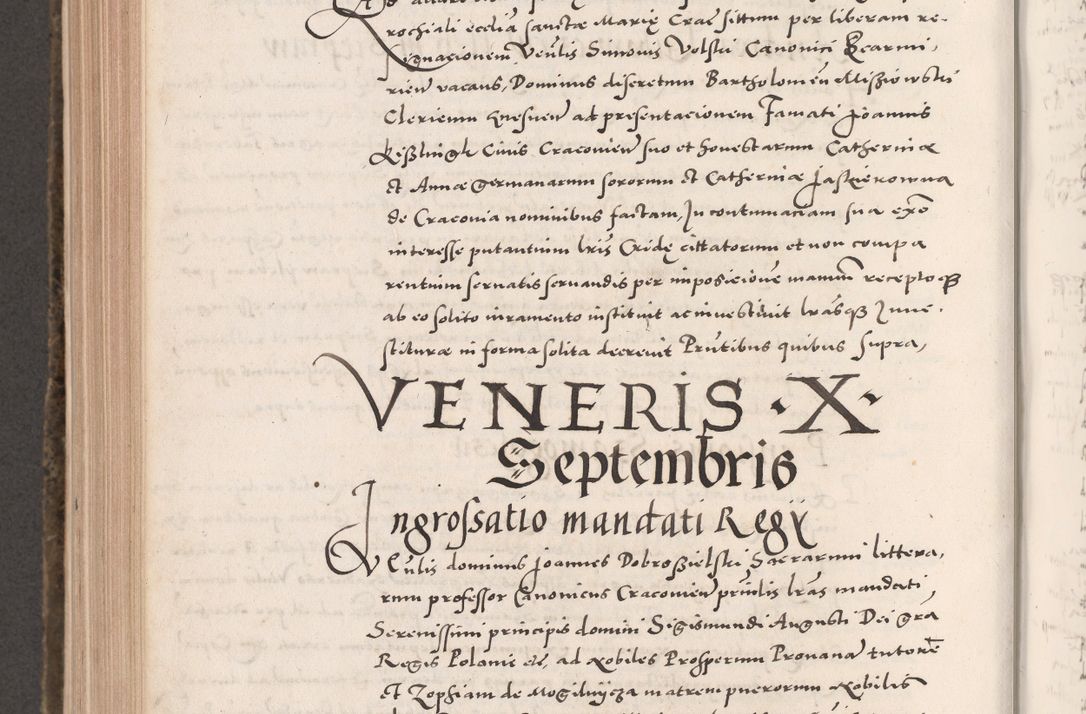 rochiali ecclia sanctæ Mariæ Crac̄ sittum per liberam re-
signacionem Veñlis Simonis Volski Canonici Scarmi,
rien̄ vacans, Dominus discretum Bartholomeū Miszowski
Clericum Gnesnen̄ ad presentacionem Famati Joannis
Kiszlingk Civis Cracovien̄ suo et honestarum Catherinæ
et Annæ Germanarum sororum et Catherinæ Jaskierowna
de Cracovia nominibus factam, In contumaciam sua exn̄o
interesse putantium lris Cridę cittatorum et non compa
rentium servatis servandis per imposicionē manuum receptoq̨
ab eo solito iuramento instituit ac investivit lrasq̨ Inve-
stituræ in forma solita decrevit Pñtibus quibus supra,
VENERIS · X ·
Septembris
Ingrossatio mandati Regii
Veñlis dominus Joannes Dobroszielski Sacrarum littera,
rum professor Canonicus Cracovien̄ pñtulis lras mandati
Serenissimi principis domini Sigismundi Augusti Dei grā
Regis Polonie etc, ad Nobiles Prosperum Provana tutorē
et Zophiam de Mogilnycza matrem puerorum Nobilis